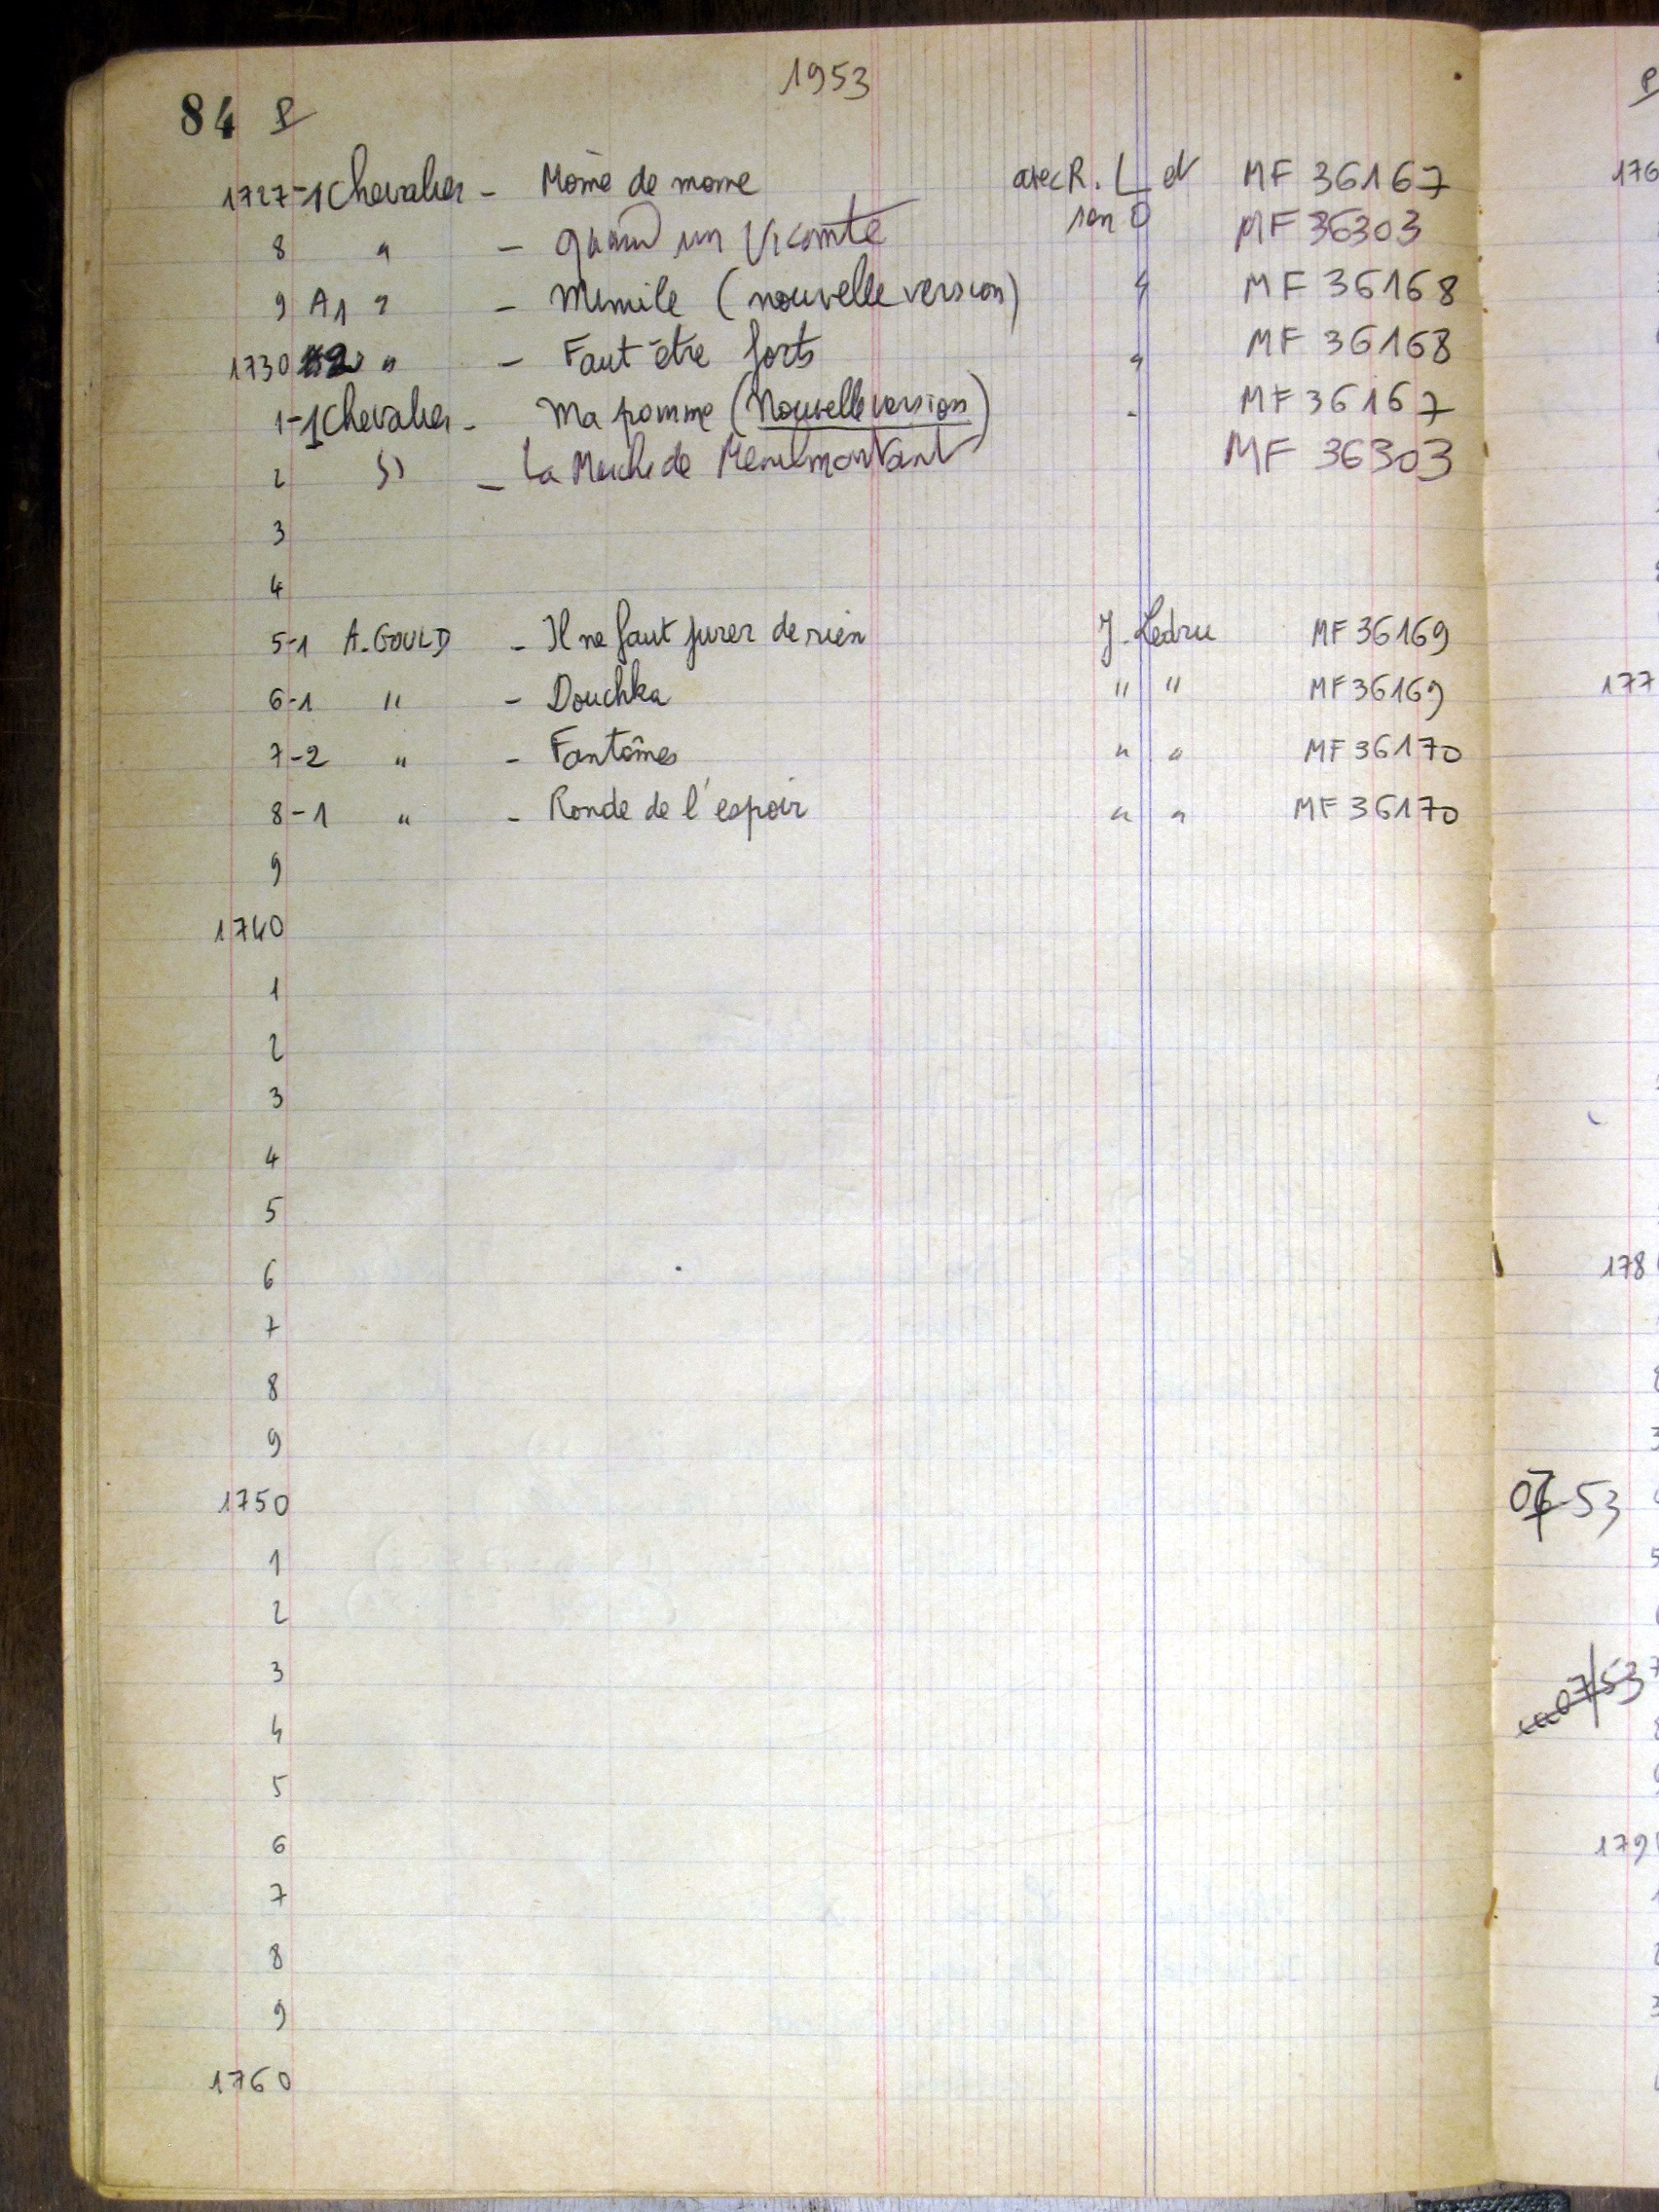 1953
84 P
1727-1 Chevalier - Môme de mome avec R. L et MF 36167
8 " - Quand un Vicomte son O MF 36303
9 A1 " - Mimile (nouvelle version) " MF 36168
1730 " - Faut être forts " MF 36168
1-1 Chevalier - Ma pomme (Nouvelle version) - MF 36167
2 " - La Marche de Menilmontant MF 36303
3
4
5-1 A. GOULD - Il ne faut jurer de rien J. Ledru MF 36169
6-1 " - Douchka " " MF 36169
7-2 " - Fantômes " " MF 36170
8-1 " - Ronde de l'espoir " " MF 36170
9
1740
1
2
3
4
5
6
7
8
9
1750
1
2
3
4
5
6
7
8
9
1760
P
176
177
178
53
07/53
179